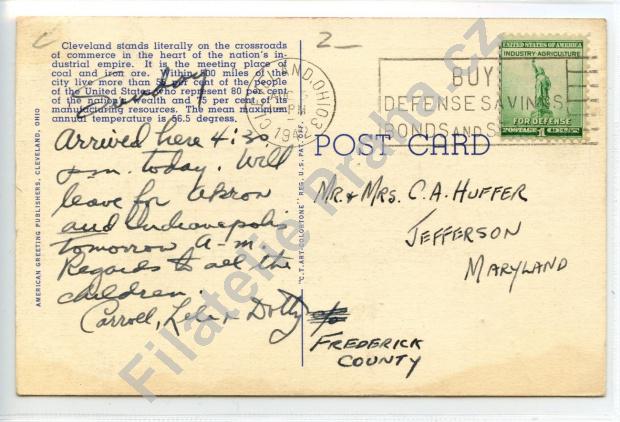 Cleveland stands literally on the crossroads
of commerce in the heart of the nation's in-
dustrial empire. It is the meeting place of
coal and iron ore. Within 500 miles of the
city live more than 55 per cent of the people
of the United States who represent 80 per cent
of the nation's wealth and 75 per cent of its
manufacturing resources. The mean maximum
annual temperature is 56.5 degrees.
Sunday
Arrived here 4:30
p.m. today. Will
leave for Akron
and Indianapolis
tomorrow a-m.
Regards to all the
children.
Carroll, Lela & Dotty
AMERICAN GREETING PUBLISHERS, CLEVELAND, OHIO
"C.T. ART-COLORTONE" REG. U.S. PAT. OFF.
2
CLEVELAND, OHIO
PM
BUY
DEFENSE SAVINGS
BONDS AND
UNITED STATES OF AMERICA
INDUSTRY-AGRICULTURE
FOR DEFENSE
POSTAGE 1 CENTS
POST CARD
MR. & MRS. C.A. HUFFER
JEFFERSON
MARYLAND
FREDERICK
COUNTY
Filatelie Praha.cz